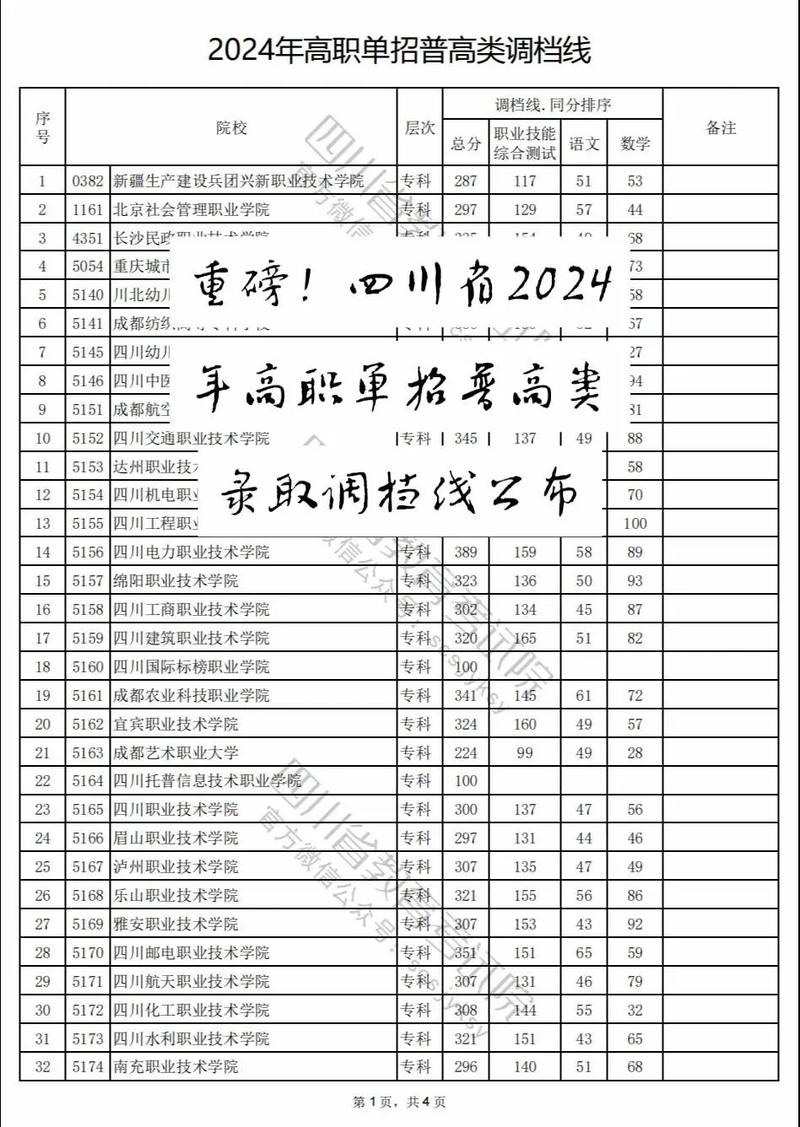 2024年高职单招普高类调档线
序号 院校 层次 调档线.同分排序 备注
总分 职业技能综合测试 语文 数学
1 0382 新疆生产建设兵团兴新职业技术学院 专科 287 117 51 53
2 1161 北京社会管理职业学院 专科 297 129 57 44
3 4351 长沙民政职业技术学院 68
4 5054 重庆城市 73
重磅！四川省2024
5 5140 川北幼儿 58
6 5141 成都纺织高等专科学校 67
7 5145 四川幼儿 27
8 5146 四川中医 94
年高职单招普高类
9 5151 成都航空 81
10 5152 四川交通职业技术学院 专科 345 137 49 88
11 5153 达州职业技术 58
12 5154 四川机电职业 70
录取调档线公布
13 5155 四川工程职业 100
14 5156 四川电力职业技术学院 专科 389 159 58 89
15 5157 绵阳职业技术学院 专科 323 136 50 93
16 5158 四川工商职业技术学院 专科 302 134 45 87
17 5159 四川建筑职业技术学院 专科 320 165 51 82
18 5160 四川国际标榜职业学院 专科 100
19 5161 成都农业科技职业学院 专科 341 145 61 72
20 5162 宜宾职业技术学院 专科 324 160 49 57
21 5163 成都艺术职业大学 专科 224 99 49 28
22 5164 四川托普信息技术职业学院 专科 100
23 5165 四川职业技术学院 专科 300 137 47 56
24 5166 眉山职业技术学院 专科 297 131 44 46
25 5167 泸州职业技术学院 专科 307 135 47 49
26 5168 乐山职业技术学院 专科 321 155 56 86
27 5169 雅安职业技术学院 专科 307 153 43 92
28 5170 四川邮电职业技术学院 专科 351 151 65 59
29 5171 四川航天职业技术学院 专科 307 131 46 79
30 5172 四川化工职业技术学院 专科 308 144 55 32
31 5173 四川水利职业技术学院 专科 321 151 43 65
32 5174 南充职业技术学院 专科 296 140 51 68
四川省教育考试院
官方微信公众号：scsjyksy
第 1 页，共 4 页